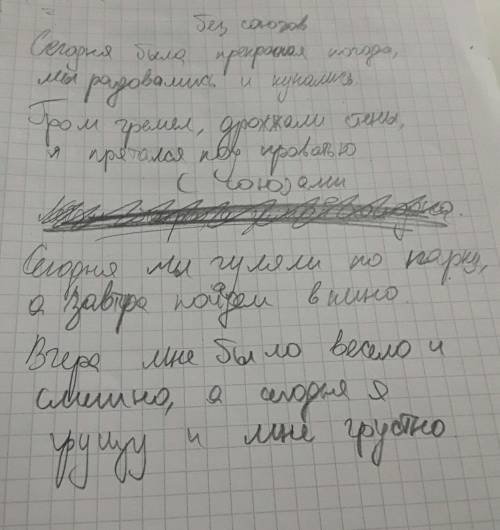 без союзов
Сегодня была прекрасная погода,
мы радовались и купались.
Гром гремел, дрожжали стены,
я прятался под кроватью
(Союзами
Сегодня мы гуляли по парку,
а завтра пойдем в кино.
Вчера мне было весело и
смешно, а сегодня я
грущу и мне грустно